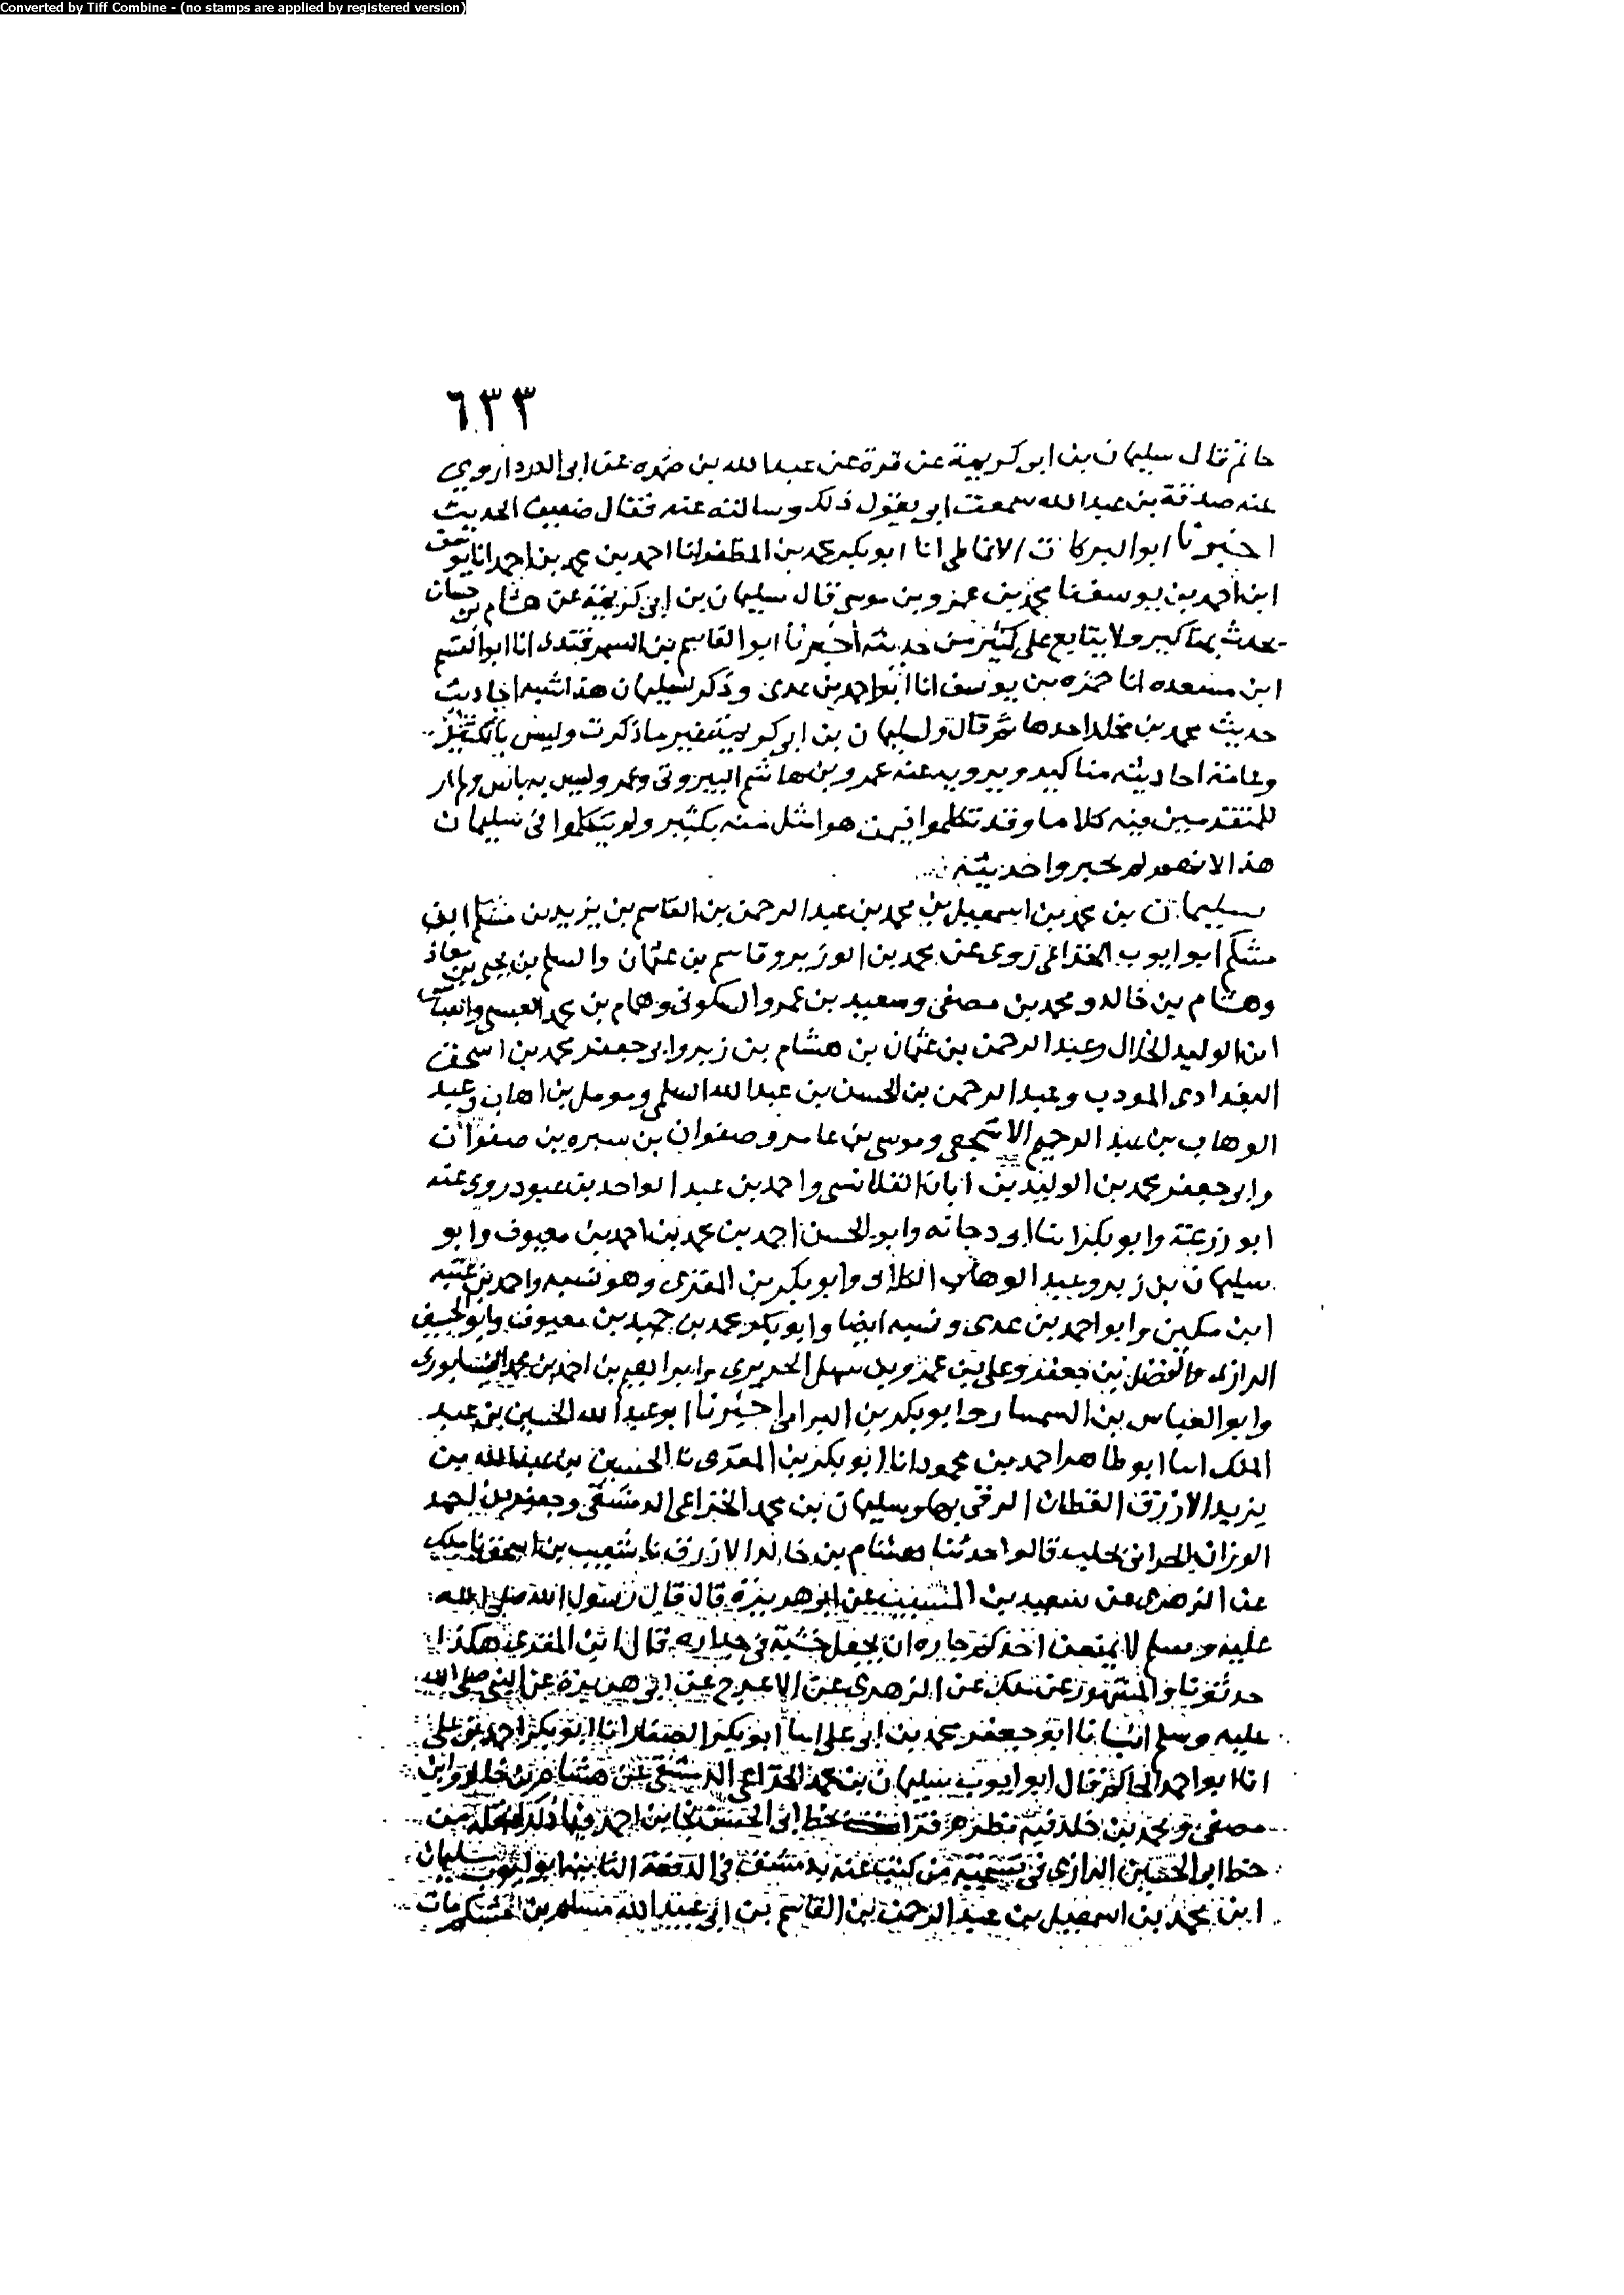 Converted by Tiff Combine - (no stamps are applied by registered version)
٦٣٣
حاتم قال سليمان بن ابى كريمة عن قرة عن عبد الله بن ضمره عن ابى الدرداروي
عنه صدقة بن عبد الله سمعت ابى يقول ذلك وسالته عنه فقال ضعيف الحديث
اخبرنا ابو البركات الانماطى انا ابو بكر محمد بن المظفر انا احمد بن محمد بن احمد انا يوسف
ابن احمد بن يوسف نا محمد بن عمرو بن موسى قال سليمان بن ابى كريمة عن هشام بن حسان
يحدث بمناكير ولا يتابع على كثير من حديثه اخبرنا ابو القاسم بن السمرقندى انا ابو القسم
ابن مسعده انا حمزه بن يوسف انا ابو احمد بن عدى وذكر لسليمان هذا اشيا احاديث
حديث محمد بن مخلد احدها ثم قال ولسليمان بن ابى كريمة غير ما ذكرت وليس بالكثير
وعامة احاديثه مناكير ويرويه عنه عمرو بن هاشم البيروتى وعمرو ليس به باس ولم ار
للمتقدمين فيه كلاما وقد تكلموا فيمن هو امثل منه بكثير ولم يتكلموا فى سليمان
هذا لانهم لم يخبروا حديثه
سليمان بن محمد بن اسمعيل بن محمد بن عبد الرحمن بن القاسم بن يزيد بن مشكم ابن
مشكم ابو ايوب الخزاعى روى عن محمد بن الوزير وقاسم بن عثمان والسلم بن يحيى بن معاذ
وهشام بن خالد ومحمد بن مصفى وسعيد بن عمرو السكونى وهمام بن محمد العبسى والعباس
ابن الوليد الخلال وعبد الرحمن بن عثمان بن هشام بن زبر وابى جعفر محمد بن اسحق
البغدادى المودب وعبد الرحمن بن الحسن بن عبد الله السلمى ومومل بن اهاب وعبد
الوهاب بن عبد الرحيم الاشجعى وموسى بن عامر وصفوان بن سبره بن صفوان
وابى جعفر محمد بن الوليد بن ابان القلانسى واحمد بن عبد الواحد بن عبود روى عنه
ابو زرعة وابو بكر ابنا ابى دجانه وابو الحسن احمد بن محمد بن احمد بن معيوف وابو
سليمان بن زبر وعبد الوهاب الكلابى وابو بكر بن المقرى وهو نسبه واحمد بن عتبه
ابن مكين وابو احمد بن عدى ونسبه ايضا وابو بكر محمد بن حميد بن معيوف وابو الحسين
الرازى والفضل بن جعفر وعلى بن عمرو بن سهل الحريرى وابراهيم بن احمد بن محمد النيسابورى
وابو العباس بن السمسار وابو بكر بن البرامى اخبرنا ابو عبد الله الحسين بن عبد
الملك انبا ابو طاهر احمد بن محمود انا ابو بكر بن المقرى نا الحسين بن عبد الله بن
يزيد الازرق القطان الرقى بها وسليمان بن محمد الخزاعى الدمشقى وجعفر بن احمد
الوزان الحرانى بحلب قالوا حدثنا هشام بن خالد الازرق نا شعيب بن اسحق نا ملك
عن الزهرى عن سعيد بن المسيب عن ابى هريرة قال قال رسول الله صلى الله
عليه وسلم لا يمنعن احدكم جاره ان يجعل خشبة فى جداره قال ابن المقرى هكذا
حدثونا والمشهور عن ملك عن الزهرى عن الاعرج عن ابى هريرة عن النبى صلى الله
عليه وسلم انبانا ابو جعفر محمد بن ابى على انبا ابو بكر الصفار انا ابو بكر احمد بن على
انا ابو احمد الحاكم قال ابو ايوب سليمان بن محمد الخزاعى الدمشقى عن هشام بن خلد وابن
مصفى ومحمد بن خلد فيه نظر قرات بخط ابى الحسن نجا بن احمد فيما ذكر انه نقله من
خط ابى الحسين الرازى فى تسمية من كتب عنه بدمشق فى الدفعة الثانية ابو ايوب سليمان
ابن محمد بن اسمعيل بن عبد الرحمن بن القاسم بن ابى عبيد الله مسلم بن مشكم مات